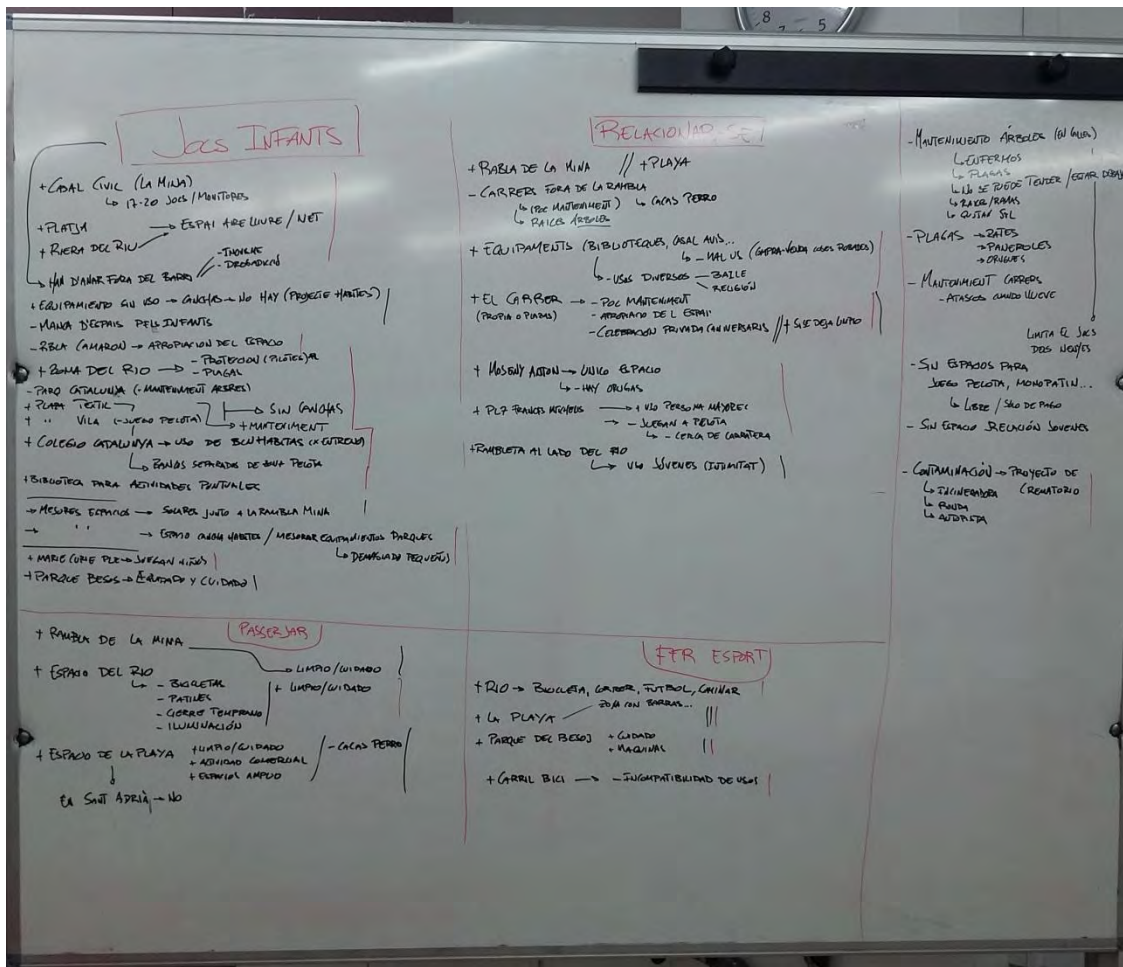 8 7 5
JOCS INFANTS
+ CASAL CIVIC (LA MINA)
↳ 17-20 JOCS / MONITORES
+ PLATJA → ESPAI AIRE LLIURE / NET
+ RIERA DEL RIU
→ HAN D'ANAR FORA DEL BARRI
- DROGADICIÓ
+ EQUIPAMIENTO SIN USO → CANCHAS → NO HAY (PROJECTE HABITES)
- MANCA D'ESPAIS PELS INFANTS
- RBLA CAMARON → APROPIACION DEL ESPACIO
+ ZONA DEL RIO → - PROTECCION (PILOTES)
- PARQ CATALUNYA (- MANTENIMENT ARBRES)
+ PLAÇA TEXTIL
+ '' VILA (- JUEGO PELOTA)
→ SIN CANCHAS
→ + MANTENIMENT
+ COLEGIO CATALUNYA → USO DE BCN HABITAS (X ENTRENO)
↳ BANCOS SEPARADOS DE PELOTA
+ BIBLIOTECA PARA ACTIVIDADES PUNTUALES
→ MESURES ESPACIOS → SOLARES JUNTO A LA RAMBLA MINA
→ '' → ESPACIO HABITES / MEJORAR EQUIPAMIENTOS PARQUES
↳ DEMASIADO PEQUEÑOS
+ MARIE CURIE PLZ → JUEGAN NIÑOS
+ PARQUE BESOS → EQUIPADO Y CUIDADO
RELACIONAR-SE
+ RABLA DE LA MINA // + PLAYA
- CARRERS FORA DE LA RAMBLA
↳ (POC MANTENIMENT) ↳ CACAS PERRO
↳ RAICES ARBOLES
+ EQUIPAMENTS (BIBLIOTEQUES, CASAL AVIS...
↳ - MAL US (COMPRA-VENDA COSES ROBADES)
↳ - USOS DIVERSOS - BAILE
RELIGIÓN
+ EL CARRER → - POC MANTENIMENT
(PROPIA O PLAZAS) - APROPIACIO DE L ESPAI
- CELEBRACION PRIVADA (ANIVERSARIS // + SI SE DEJA LIMPIO
+ MOSENY ANTON → UNICO ESPACIO
↳ - HAY ORUGAS
+ PLZ FRANCESC → + USO PERSONA MAYORES
→ - JUEGAN A PELOTA
↳ - CERCA DE CARRETERA
+ RAMBLETA AL LADO DEL RIO
↳ USO JÓVENES (INTIMITAT)
- MANTENIMIENTO ÁRBOLES (EN CALLES)
↳ ENFERMOS
↳ PLAGAS
↳ NO SE PUEDE TENDER / ESTAR DEBAJO
↳ RAICES / RAMAS
↳ QUITAN SOL
- PLAGAS → RATES
→ PANEROLES
→ ORUGUES
- MANTENIMENT CARRERS
- ATASCOS CUANDO LLUEVE
LIMITA EL JOCS
DELS NENS/ES
- SIN ESPACIOS PARA
JUEGO PELOTA, MONOPATIN...
↳ LIBRE / SOLO DE PAGO
- SIN ESPACIO RELACIÓN JOVENES
- CONTAMINACIÓN → PROYECTO DE
↳ INCINERADORA CREMATORIO
↳ RONDA
↳ AUTOPISTA
PASSEJAR
+ RAMBLA DE LA MINA → LIMPIO / CUIDADO
+ ESPACIO DEL RIO
↳ - BICICLETAS + LIMPIO / CUIDADO
- PATINES
- CIERRE TEMPRANO
- ILUMINACIÓN
+ ESPACIO DE LA PLAYA + LIMPIO / CUIDADO / - CACAS PERRO
+ ACTIVIDAD COMERCIAL
+ ESPACIOS AMPLIO
EN SANT ADRIÀ → NO
FER ESPORT
+ RIO → BICICLETA, CORRER, FUTBOL, CAMINAR
ZONA CON BARRAS...
+ LA PLAYA
+ PARQUE DEL BESOS + CUIDADO
+ MAQUINAS
+ CARRIL BICI → - INCOMPATIBILIDAD DE USOS